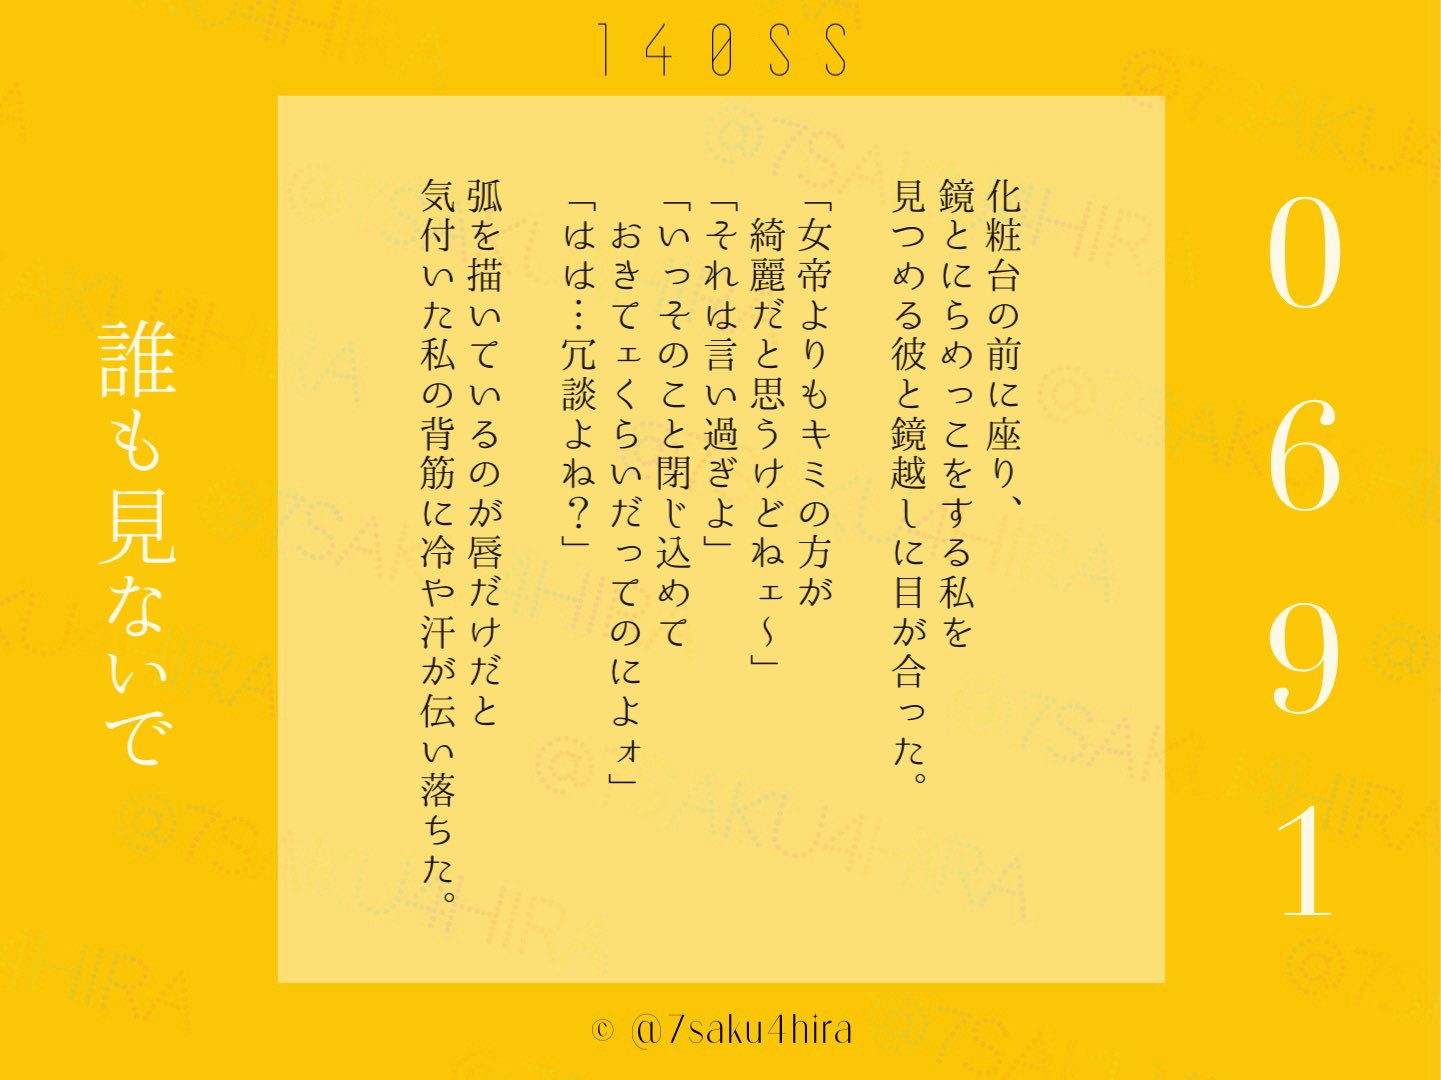 140SS
0691
化粧台の前に座り、
鏡とにらめっこをする私を
見つめる彼と鏡越しに目が合った。
「女帝よりもキミの方が
綺麗だと思うけどねェ～」
「それは言い過ぎよ」
「いっそのこと閉じ込めて
おきてェくらいだってのによォ」
「はは…冗談よね？」
弧を描いているのが唇だけだと
気付いた私の背筋に冷や汗が伝い落ちた。
誰も見ないで
© @7saku4hira